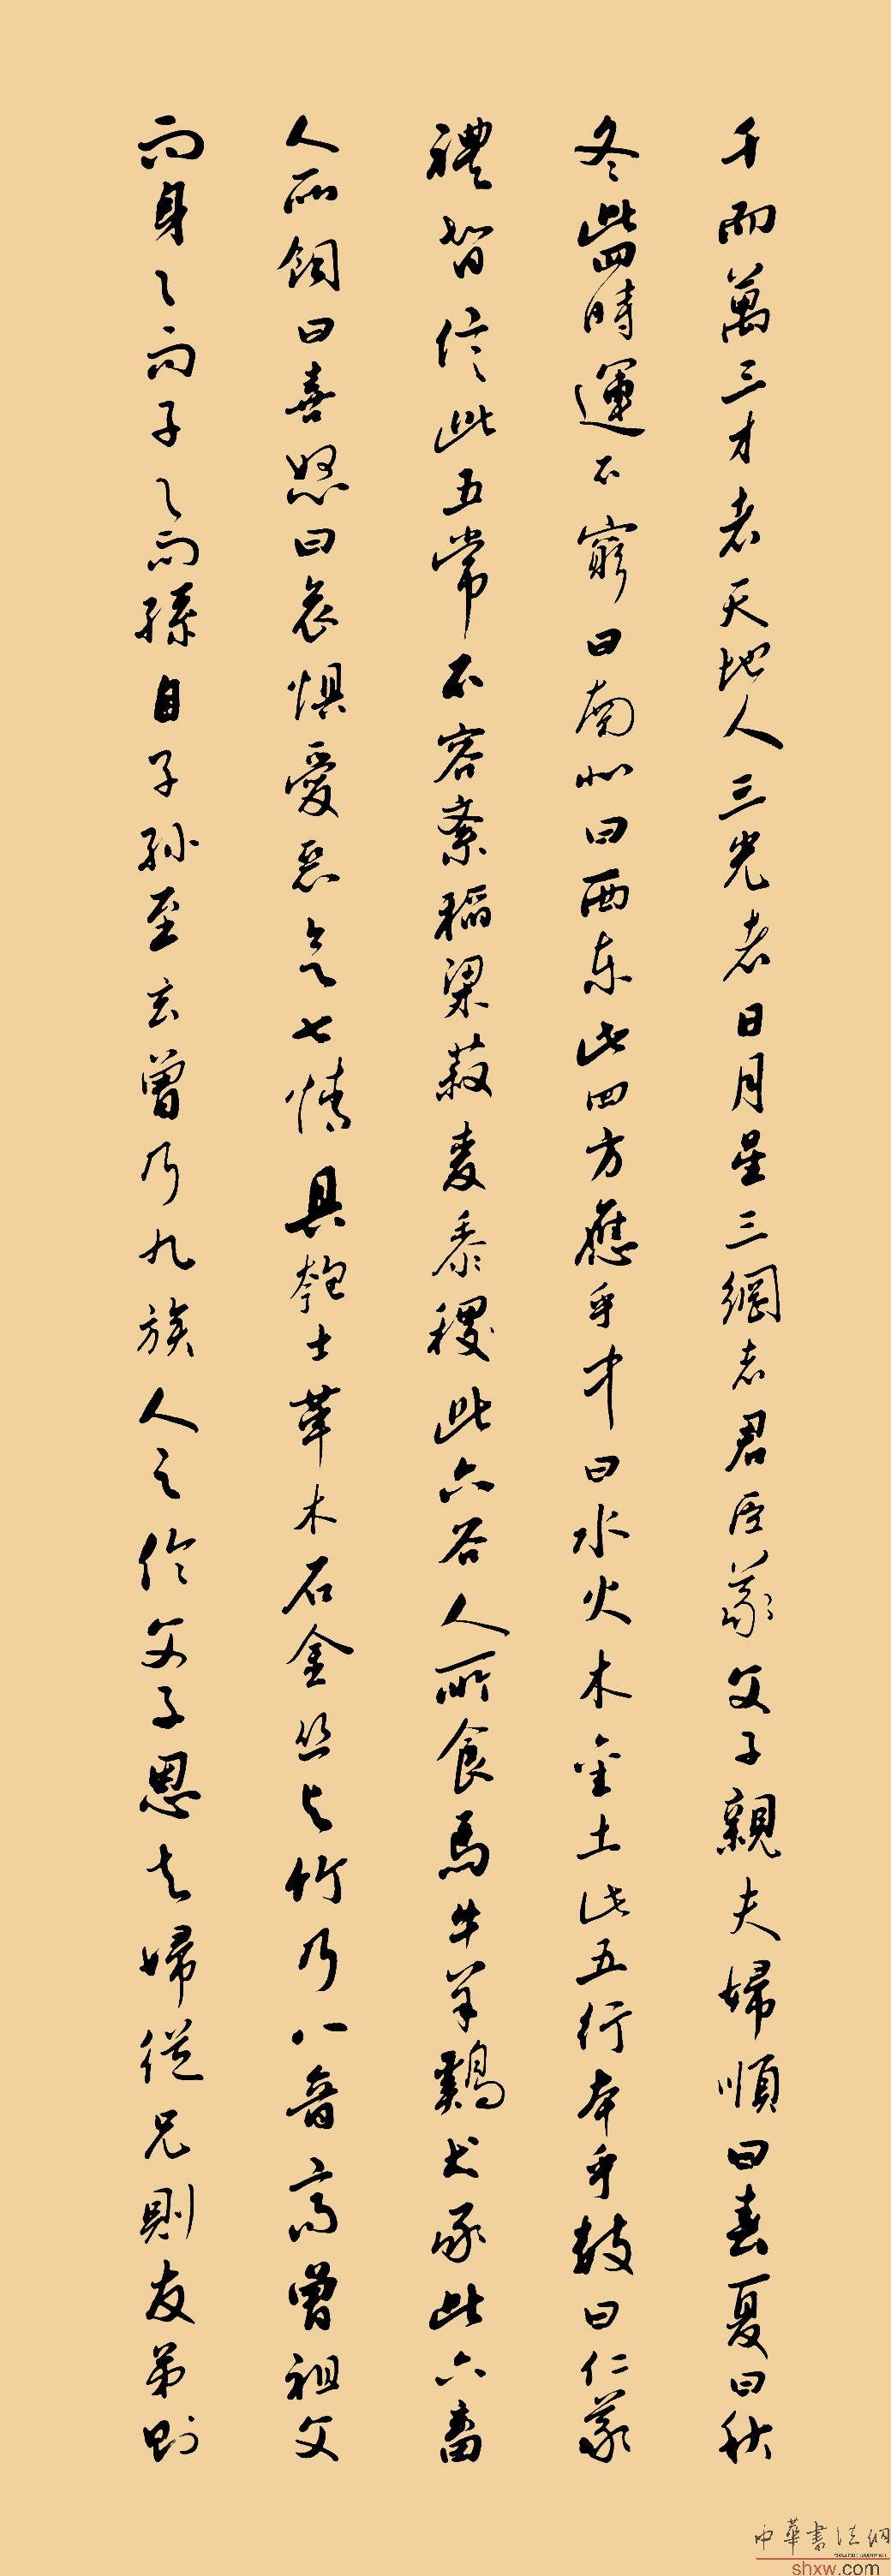 千而萬三才者天地人三光者日月星三綱者君臣義父子親夫婦順曰春夏曰秋
冬此四時運不窮曰南北曰西東此四方應乎中曰水火木金土此五行本乎數曰仁義
禮智信此五常不容紊稻粱菽麥黍稷此六谷人所食馬牛羊雞犬豕此六畜
人所飼曰喜怒曰哀懼愛惡欲七情具匏土革木石金絲與竹乃八音高曾祖父
而身身而子子而孫自子孫至玄曾乃九族人之倫父子恩夫婦從兄則友弟則
中華書法網
shxw.com